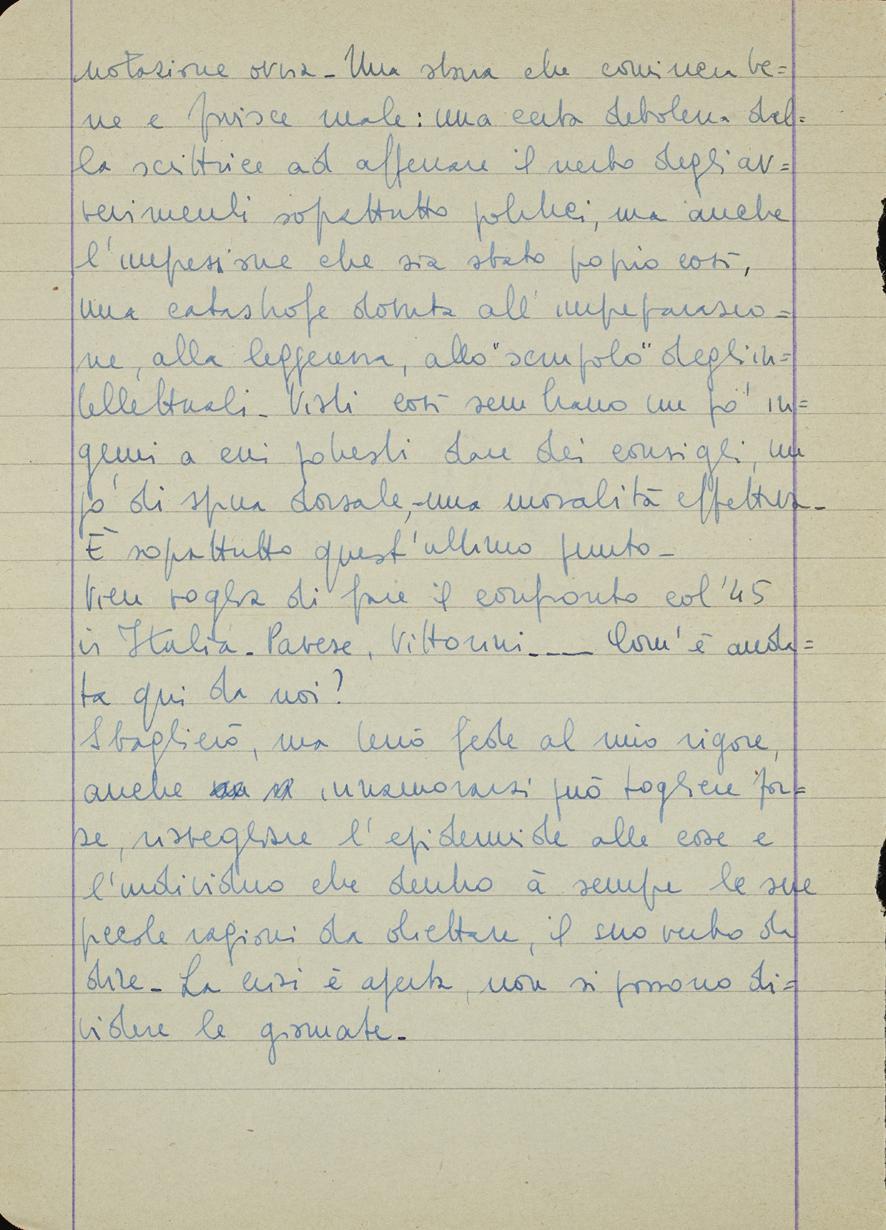 notazione ovvia_ Una storia che comincia be=
ne e finisce male: una certa debolezza del=
la scrittrice ad afferrare il verbo degli av=
venimenti soprattutto politici, ma anche
l'impressione che sia stato proprio così,
una catastrofe dovuta all'impreparazio=
ne, alla leggerezza, allo "scrupolo" degli in=
tellettuali_ Visti così sembrano un po' in=
genui a cui potresti dare dei consigli, un
po' di spina dorsale, una moralità effettiva_
È soprattutto quest'ultimo punto_
Vien voglia di fare il confronto col '45
in Italia_ Pavese, Vittorini____ Com'è anda=
ta qui da noi?
Sbaglierò, ma terrò fede al mio rigore,
anche innamorarsi può togliere for=
se, risvegliare l'epidermide alle cose e
l'individuo che dentro à sempre le sue
piccole ragioni da obiettare, il suo verbo da
dire_ La crisi è aperta, non si possono di=
videre le giornate_